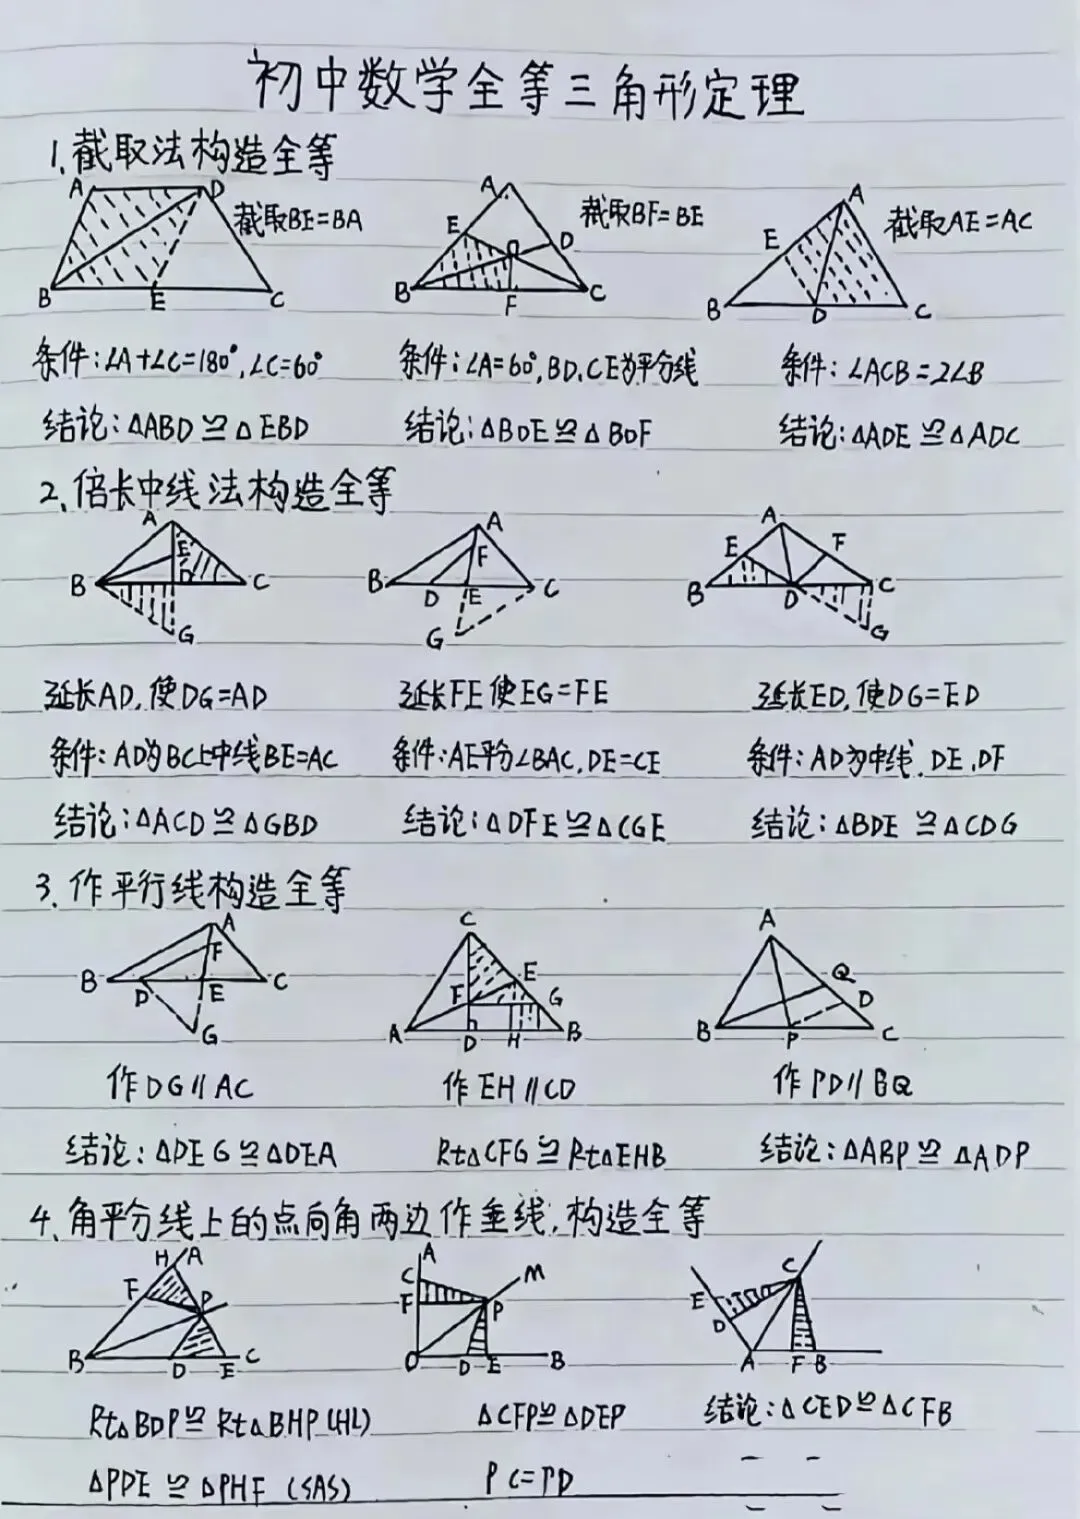 初中数学全等三角形定理
1、截取法构造全等
A D B E C 截取BE=BA
A E O D B F C 截取BF=BE
A E B D C 截取AE=AC
条件:∠A+∠C=180°,∠C=60° 条件:∠A=60°,BD、CE为平分线 条件:∠ACB=2∠B
结论:△ABD≌△EBD 结论:△BOE≌△BOF 结论:△ADE≌△ADC
2、倍长中线法构造全等
A E B D C G
A F B D E C G
A E F B D C G
延长AD,使DG=AD 延长FE使EG=FE 延长ED,使DG=ED
条件:AD为BC上中线BE=AC 条件:AE平分∠BAC,DE=CE 条件:AD为中线、DE、DF
结论:△ACD≌△GBD 结论:△DFE≌△CGE 结论:△BDE≌△CDG
3、作平行线构造全等
A F B D E C G
C E F G A D H B
A Q D B P C
作DG∥AC 作EH∥CD 作PD∥BQ
结论:△DEG≌△DEA Rt△CFG≌Rt△EHB 结论:△ABP≌△ADP
4、角平分线上的点向角两边作垂线,构造全等
H A F P B D E C
A C M F P O D E B
C E D A F B
Rt△BDP≌Rt△BHP(HL) △CFP≌△DEP 结论:△CED≌△CFB
△PDE≌△PHF(SAS) PC=PD